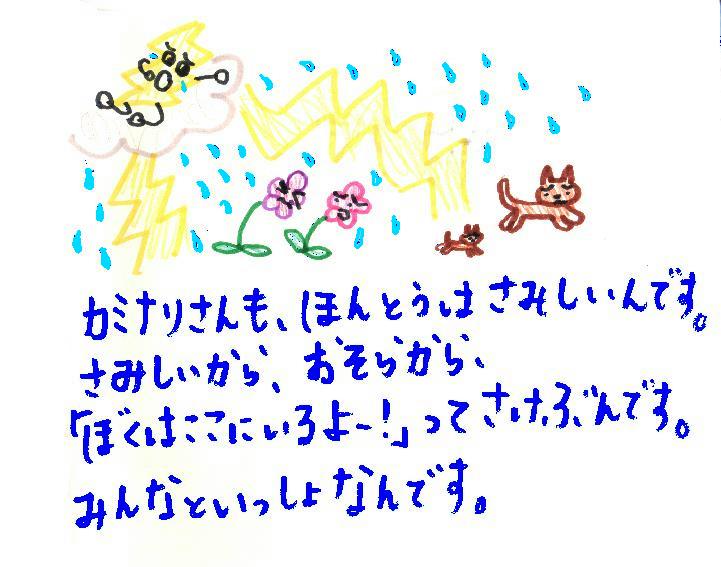 カミナリさんも、ほんとうは さみしいんです。
さみしいから、おそらから、
「ぼくはここにいろよー!」って さけぶんです。
みんなといっしょなんです。